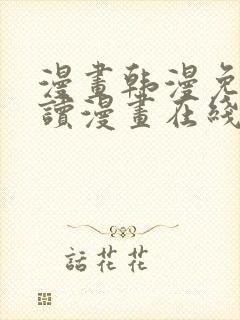 漫畫韩漫免
讀漫畫在綫
話花花